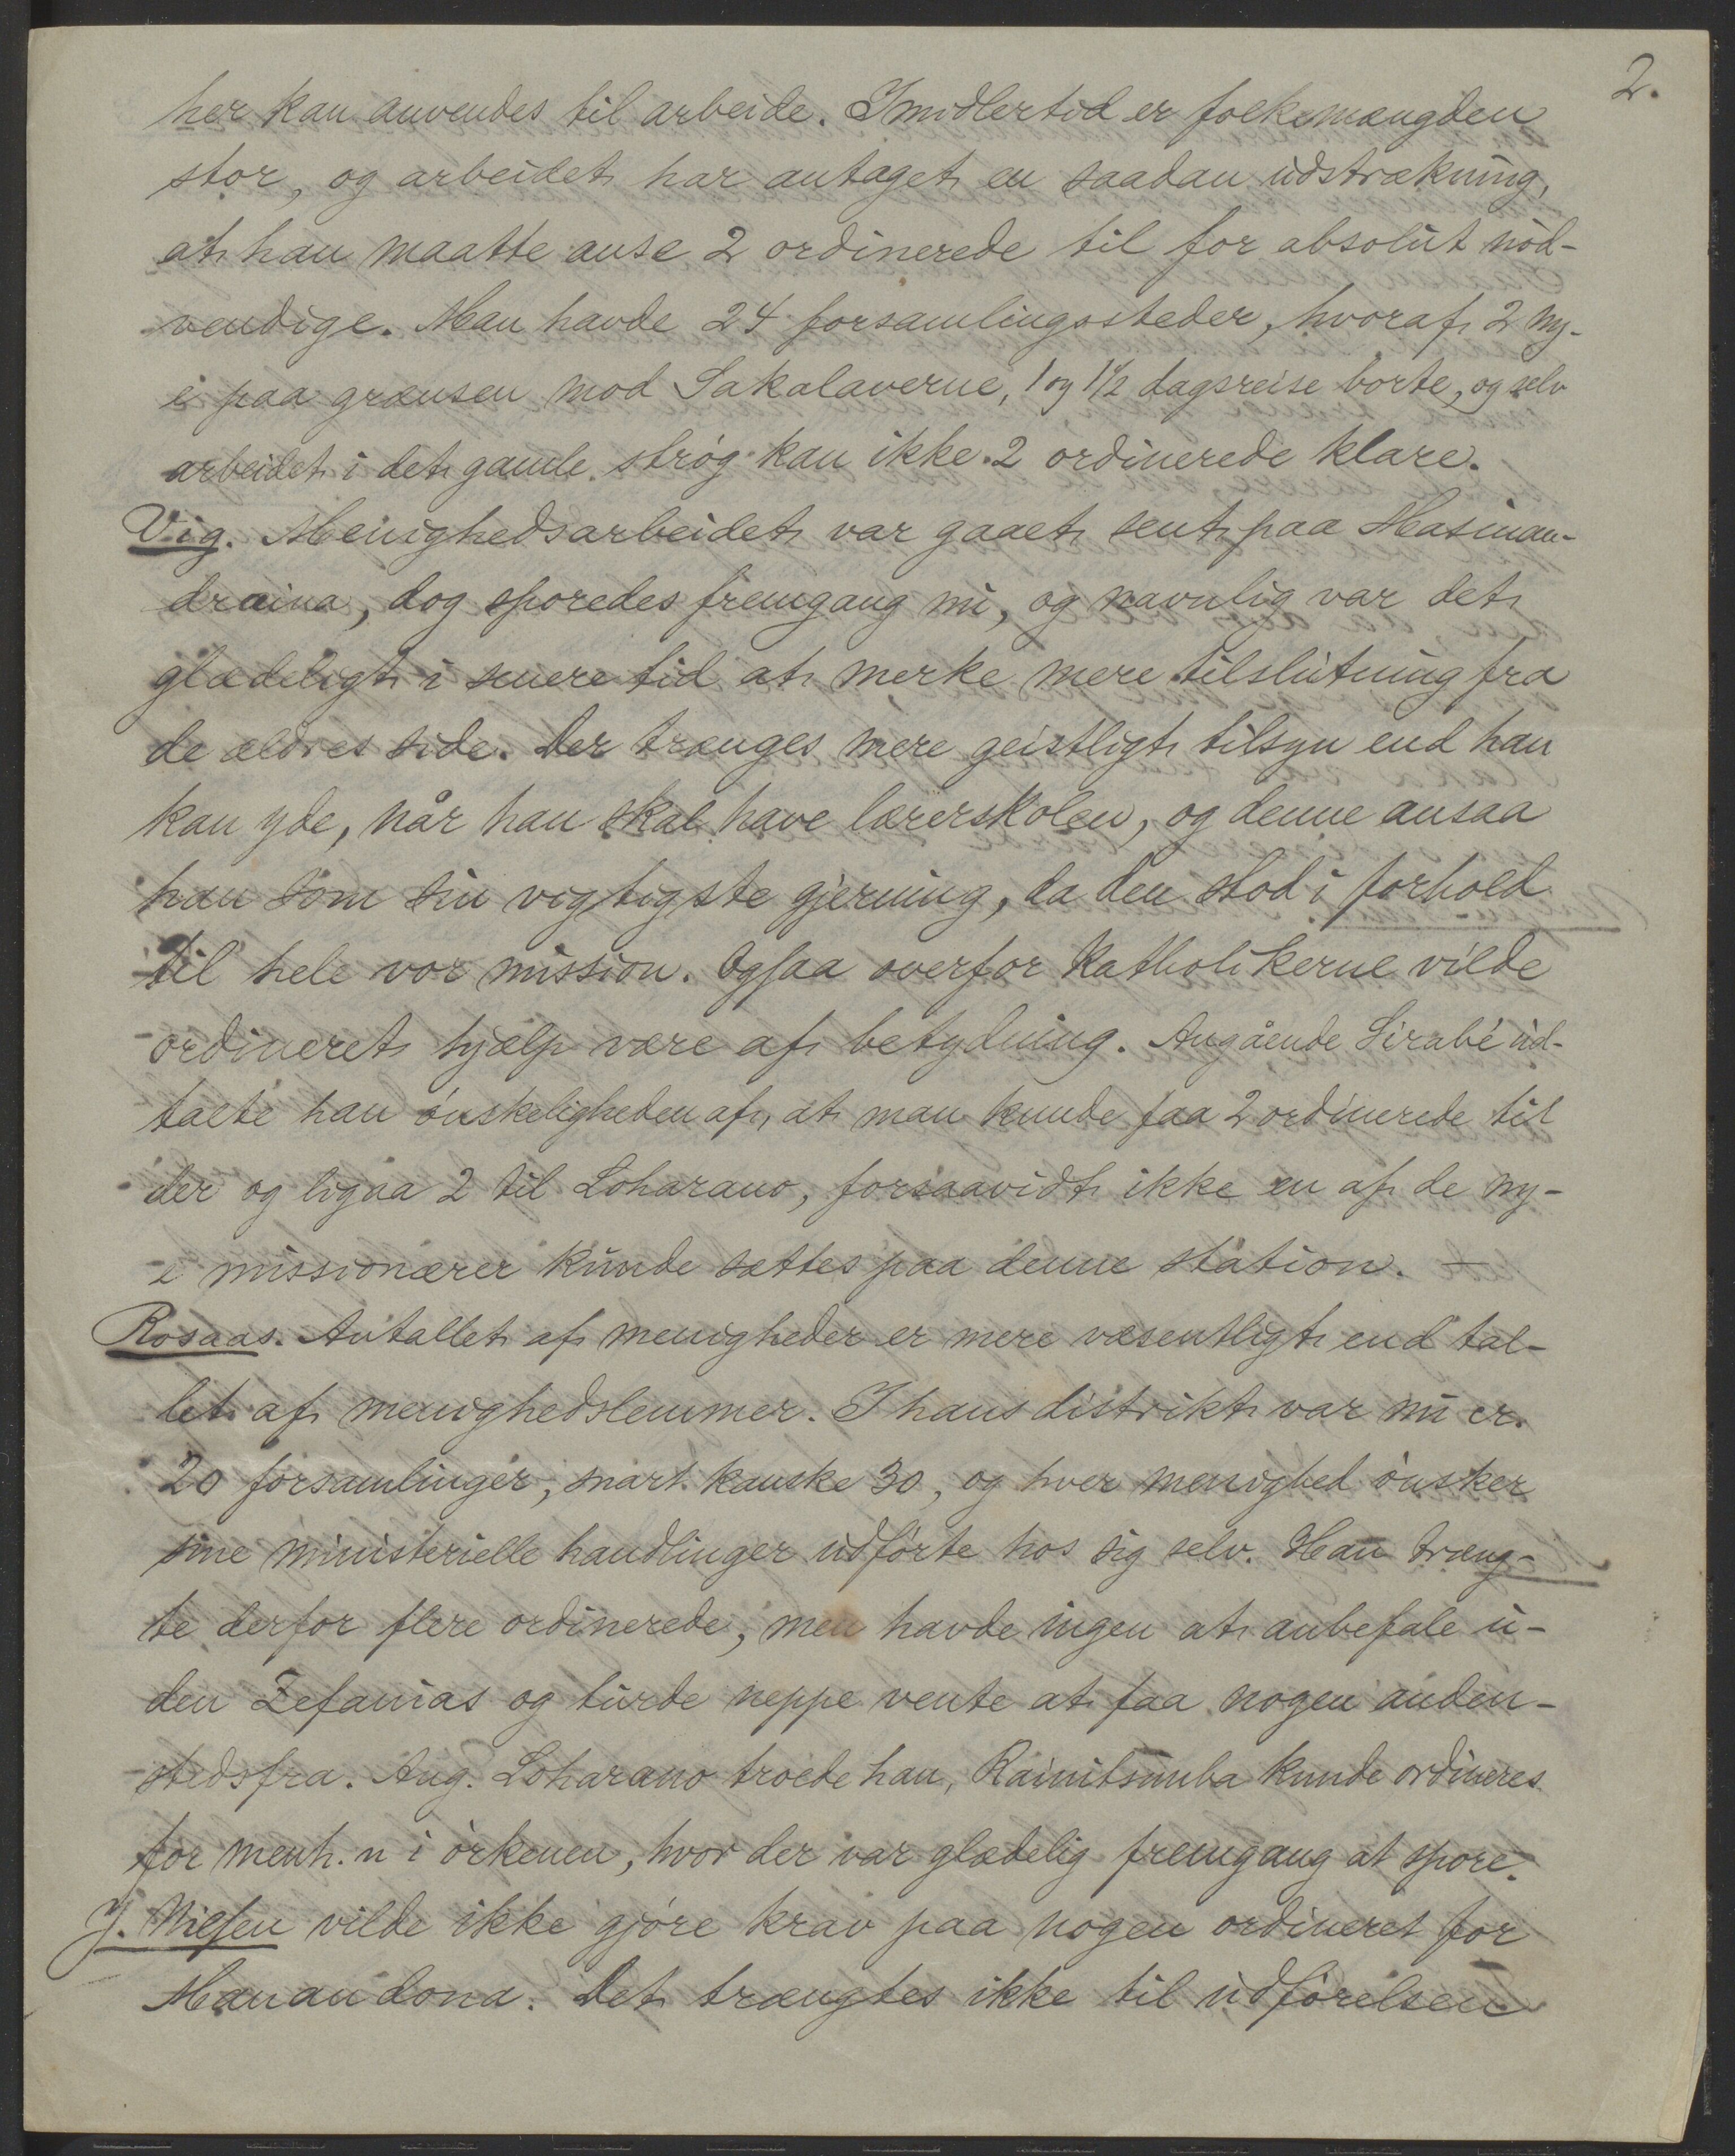 2.
her kan anvendes til arbeide. Imidlertid er folkemængden
stor, og arbeidet har antaget en saadan udstrækning,
at han maatte anse 2 ordinerede til for absolut nød-
vendige. Man havde 24 forsamlingssteder, hvoraf 2 ny-
e paa grænsen mod Sakalaverne, 1 og 1½ dagsreise borte, og selv
arbeidet i det gamle strøg kan ikke 2 ordinerede klare.
Vig. Menighedsarbeidet var gaaet sent paa Masinan-
draina, dog sporedes fremgang nu, og navnlig var det
glædeligt i senere tid at merke mere tilslutning fra
de ældres side. Der trænges mere geistligt tilsyn end han
kan yde, når han skal have lærerskolen, og denne ansaa
han som sin vigtigste gjerning, da den stod i forhold
til hele vor mission. Ogsaa overfor Katholikerne vilde
ordineret hjælp være af betydning. Angående Sirabé ud-
talte han ønskeligheden af, at man kunde faa 2 ordinerede til
der og ligsaa 2 til Loharano, forsaavidt ikke en af de ny-
e missionærer kunde sættes paa denne station. —
Rosaas. Antallet af menigheder er mere væsentligt end tal-
let af menighedslemmer. I hans distrikt var nu cr.
20 forsamlinger, snart kanske 30, og hver menighed ønsker
sine ministerielle handlinger udførte hos sig selv. Han træng-
te derfor flere ordinerede, men havde ingen at anbefale u-
den Zefanias og turde neppe vente at faa nogen anden-
stedsfra. Ang. Loharano troede han, Rainitsimba kunde ordineres
for menh.n i ørkenen, hvor der var glædelig fremgang at spore.
J. Nilsen vilde ikke gjøre krav paa nogen ordineret for
Manandona. Det trængtes ikke til udførelsen